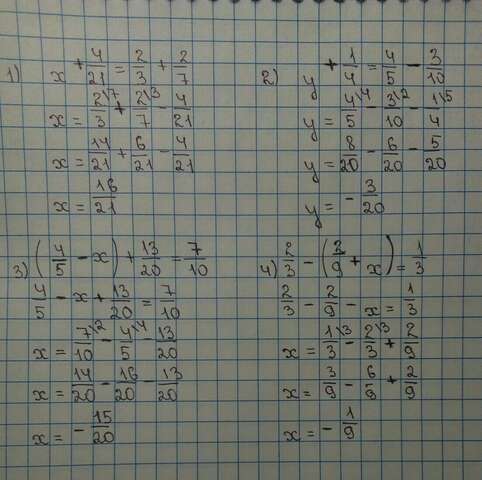 1) x + 4/21 = 2/3 + 2/7
x = 2\7/3 + 2\3/7 - 4/21
x = 14/21 + 6/21 - 4/21
x = 16/21
2) y + 1/4 = 4/5 - 3/10
y = 4\4/5 - 3\2/10 - 1\5/4
y = 8/20 - 6/20 - 5/20
y = - 3/20
3) (4/5 - x) + 13/20 = 7/10
4/5 - x + 13/20 = 7/10
x = 7\2/10 - 4\4/5 - 13/20
x = 14/20 - 16/20 - 13/20
x = - 15/20
4) 2/3 - (2/9 + x) = 1/3
2/3 - 2/9 - x = 1/3
x = 1\3/3 - 2\3/3 + 2/9
x = 3/9 - 6/9 + 2/9
x = - 1/9